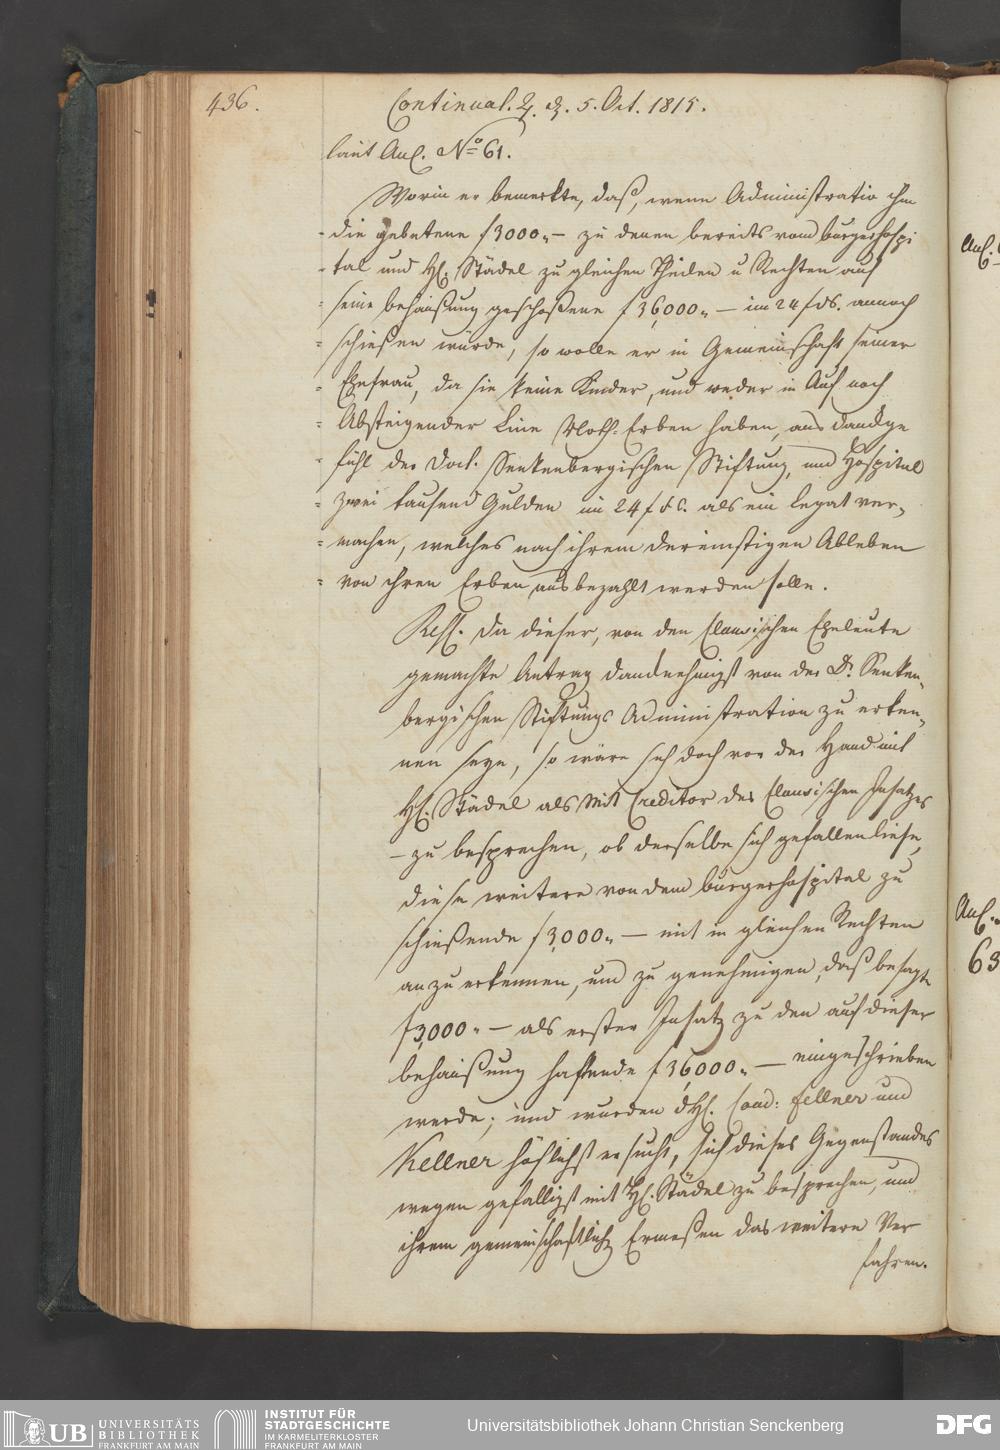 436.
Continuat. d. 5. Oct. 1815.
laut Anl. No 61.
Worin er bemerkte, daß, wenn Administratio ihm
die gebetene f 3000„— zu denen bereits vom burgerhospi
tal und H. Städel zu gleichen Theilen u Rechten auf
seine behaußung geschoßene f 36,000„— im 24 f ds. annoch
schießen würde, so wolle er in Gemeinschaft seiner
Ehefrau, da sie keine Kinder, und weder in Auf noch
Absteigender Linie Noth-Erben haben, aus Danckge
fühl der Doct. Senkenbergischen Stiftung, und Hospital
zwei tausend Gulden im 24 f ds. als ein Legat ver„
machen, welches nach ihrem dereinstigen Ableben
von ihren Erben ausbezahlt werden solle.
Da dieser, von den Eheleute
gemachte Antrag von der Dr. Senken„
bergischen Stiftungs Administration zu erken„
nen seye, so wäre sich doch vor der Hand mit
H. Städel als Mit Creditor des Insatzes
— zu besprechen, ob derselbe sich gefallen liese,
diese weitere von dem burgerhospital zu
schießende f 3,000„— mit in gleichen Rechten
anzuerkennen, und zu genehmigen, daß besagte
f 3,000„— als erster Insatz zu den auf dieser
behaußung haftende f 36,000„— eingeschrieben
werde; und wurden dH. Cand: Fellner und
Kellner höflichst ersucht, sich dieses Gegenstandes
wegen gefälligst mit H. Städel zu besprechen, und
ihrem gemeinschaftlich Ermeßen das weitere Ver
fahren.
Anl.
Anl.
63
UB UNIVERSITÄTS
BIBLIOTHEK
FRANKFURT AM MAIN
INSTITUT FÜR
STADTGESCHICHTE
IM KARMELITERKLOSTER
FRANKFURT AM MAIN
Universitätsbibliothek Johann Christian Senckenberg
DFG